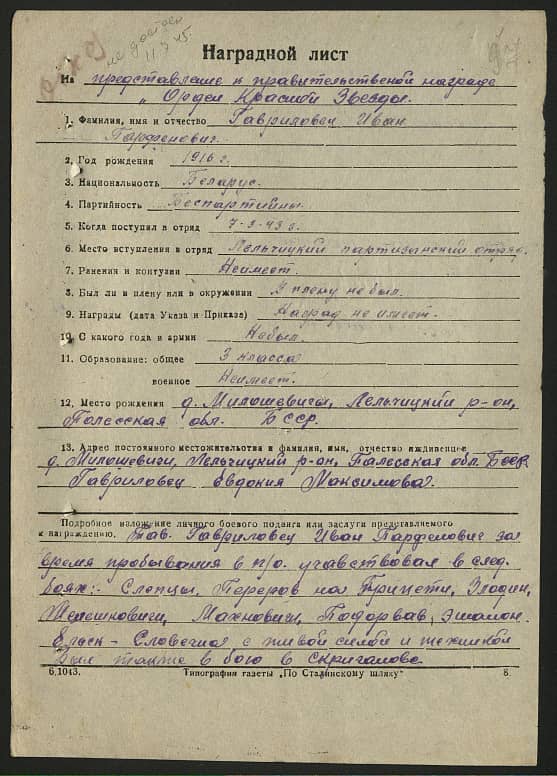 не достоин
11.7.45.
Наградной лист
На представление к правительственой награде
„ Орден Красной Звезды.
1. Фамилия, имя и отчество Гавриловец Иван
Парфенович.
2. Год рождения 1916 г.
3. Национальность Беларус.
4. Партийность Беспартийны
5. Когда поступил в отряд 7-3-43 г.
6. Место вступления в отряд Лельчицкий партизанский отряд.
7. Ранения и контузии Неимеет.
8. Был ли в плену или в окружении У плену не был.
9. Награды (дата Указа и Приказа) Наград не имеет.
10. С какого года в армии Небыл.
11. Образование: общее 3 класса
военное Неимеет.
12. Место рождения д. Милошевичи, Лельчицкий р-он,
Палесская обл. БССР.
13. Адрес постоянного местожительства и фамилия, имя, отчество иждивенцев
д. Милошевичи, Лельчицкий р-он, Палесская обл. БССР
Гавриловец Евдокия Максимовна.
Подробное изложение личного боевого подвига или заслуги представляемого
к награждению. Тов. Гавриловец Иван Парфенович за
время пробывания в п/о. учавствовал в след.
боях:- Слепцы, Переров на Припети, Злодин,
Мелешковичи, Махновичи, Подорвав, эшалон.
Ельск - Словечная с живой силой и техникой
Был также в бою в Скригалове
6.1043. Типография газеты „По Сталинскому шляху" 8.